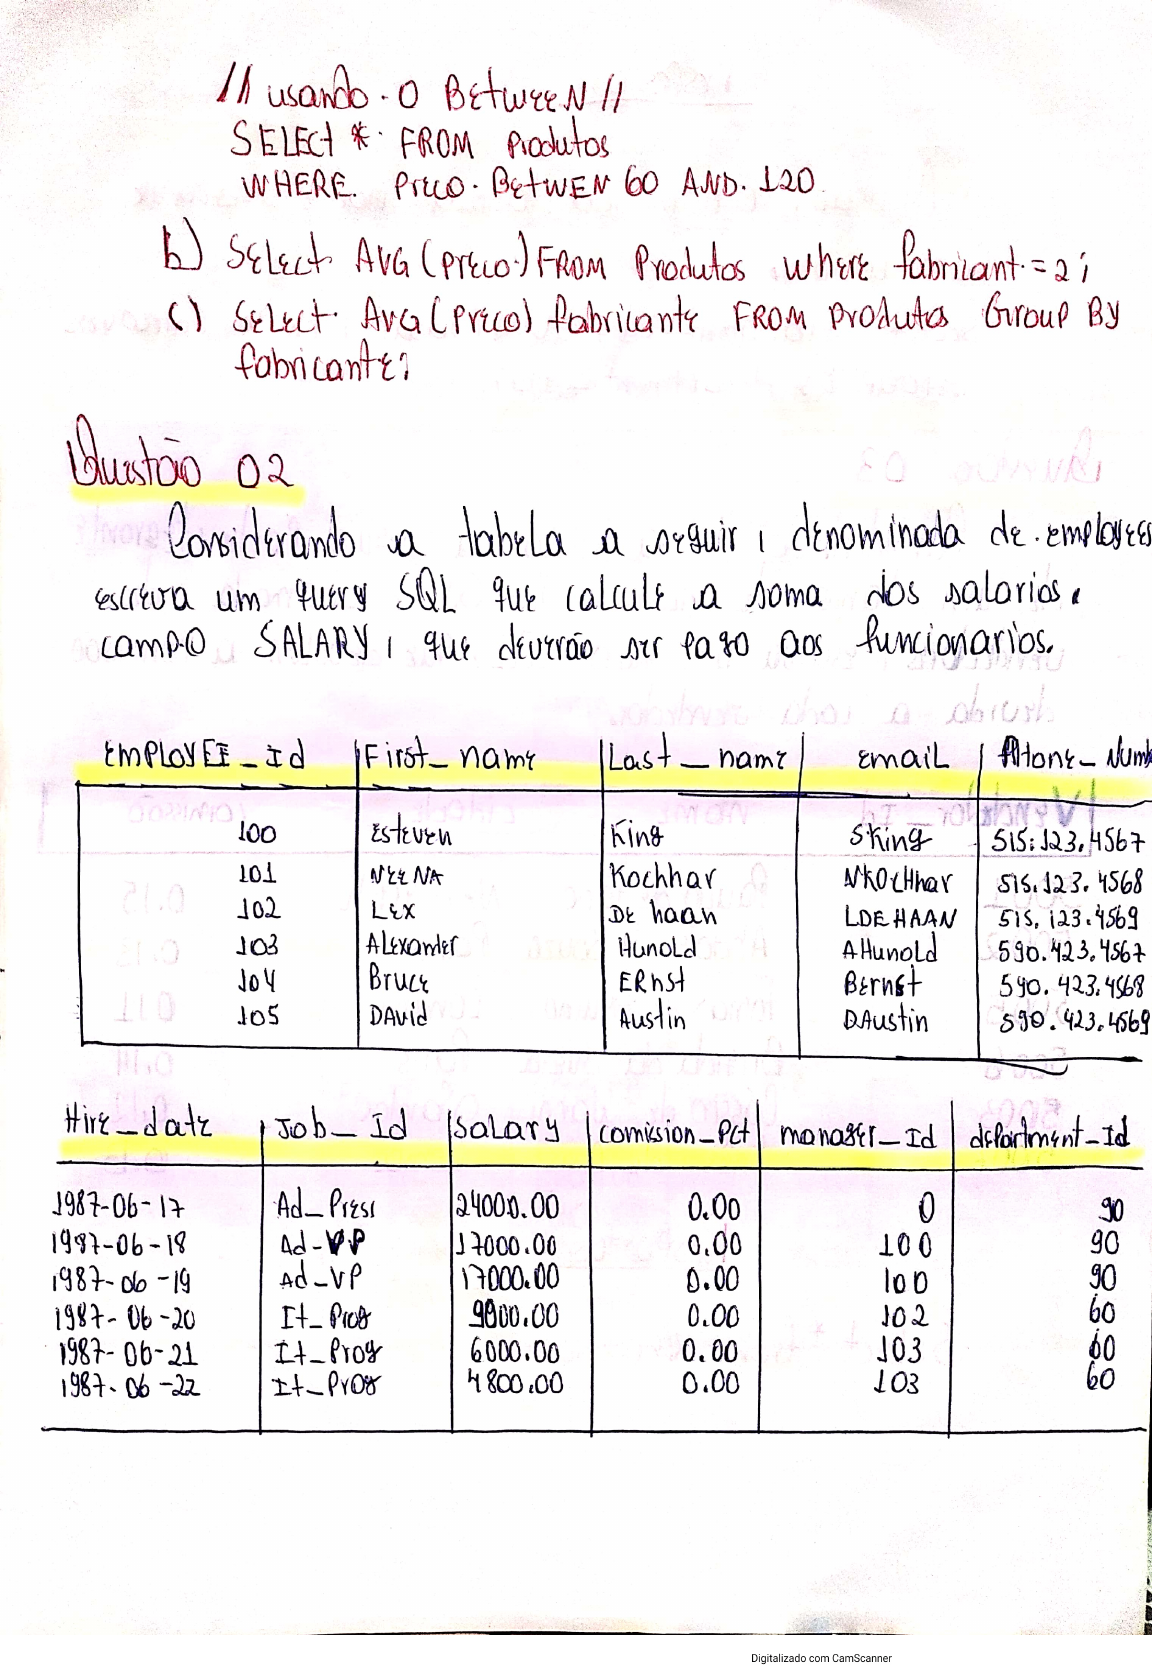 // usando o BetweeN //
SELECT * FROM Produtos
WHERE. Preco. BetwEN 60 AND. 120
b) Select AVG (preco) FROM Produtos where fabricant = 2;
c) Select AVG (preco) fabricante FROM produtos Group BY
fabricante;
Questão 02
Considerando a tabela a seguir, denominada de employees
escreva um query SQL que calcule a soma dos salarios,
campo SALARY, que deverão ser pago aos funcionarios.
EmployEE_Id First_name Last_name Email Phone_Num
100 Esteven King SKing 515.123.4567
101 NEENA Kochhar NKOcHhar 515.123.4568
102 Lex De haan LDEHAAN 515.123.4569
103 Alexander Hunold AHunold 590.423.4567
104 Bruce ERnst Bernst 590.423.4568
105 DAvid Austin DAustin 590.423.4569
Hire_date Job_Id Salary comission_Pct manager_Id department_Id
1987-06-17 Ad_Press 24000.00 0.00 0 90
1987-06-18 Ad-VP 17000.00 0.00 100 90
1987-06-19 Ad_VP 17000.00 0.00 100 90
1987-06-20 It_Prog 9000.00 0.00 102 60
1987-06-21 It_Prog 6000.00 0.00 103 60
1987-06-22 It_Prog 4800.00 0.00 103 60
Digitalizado com CamScanner